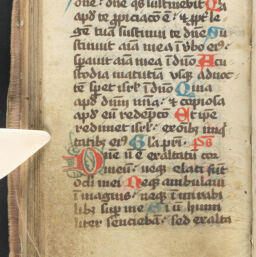 dne: dne qs sustinebit Q
apd te ꝓpiciatio ē: & ꝓpt̄ le
gē tuā sustinui te dn̄e Su
stinuit aīa mea ī vbo ei9:
spauit aīa mea ī dn̄o A cu
stodia matutīa vsq̄ ad noc
tē spet isrl̄ ī dn̄o Quia
apd dnm mīa: & copiosa
apd eū redēpco Et ipe
redimet isrl̄: ex oīb3 iniq
tatib3 ei9 Gla pr̄i. ps
Dne nō ē exaltatū cor
meū: neq3 elati sūt
ocli mei Neq3 ambulaui
ī magnis: neq3 ī mirabi
lib3 sup me Si nō humi
liter sencieba: sed exalta